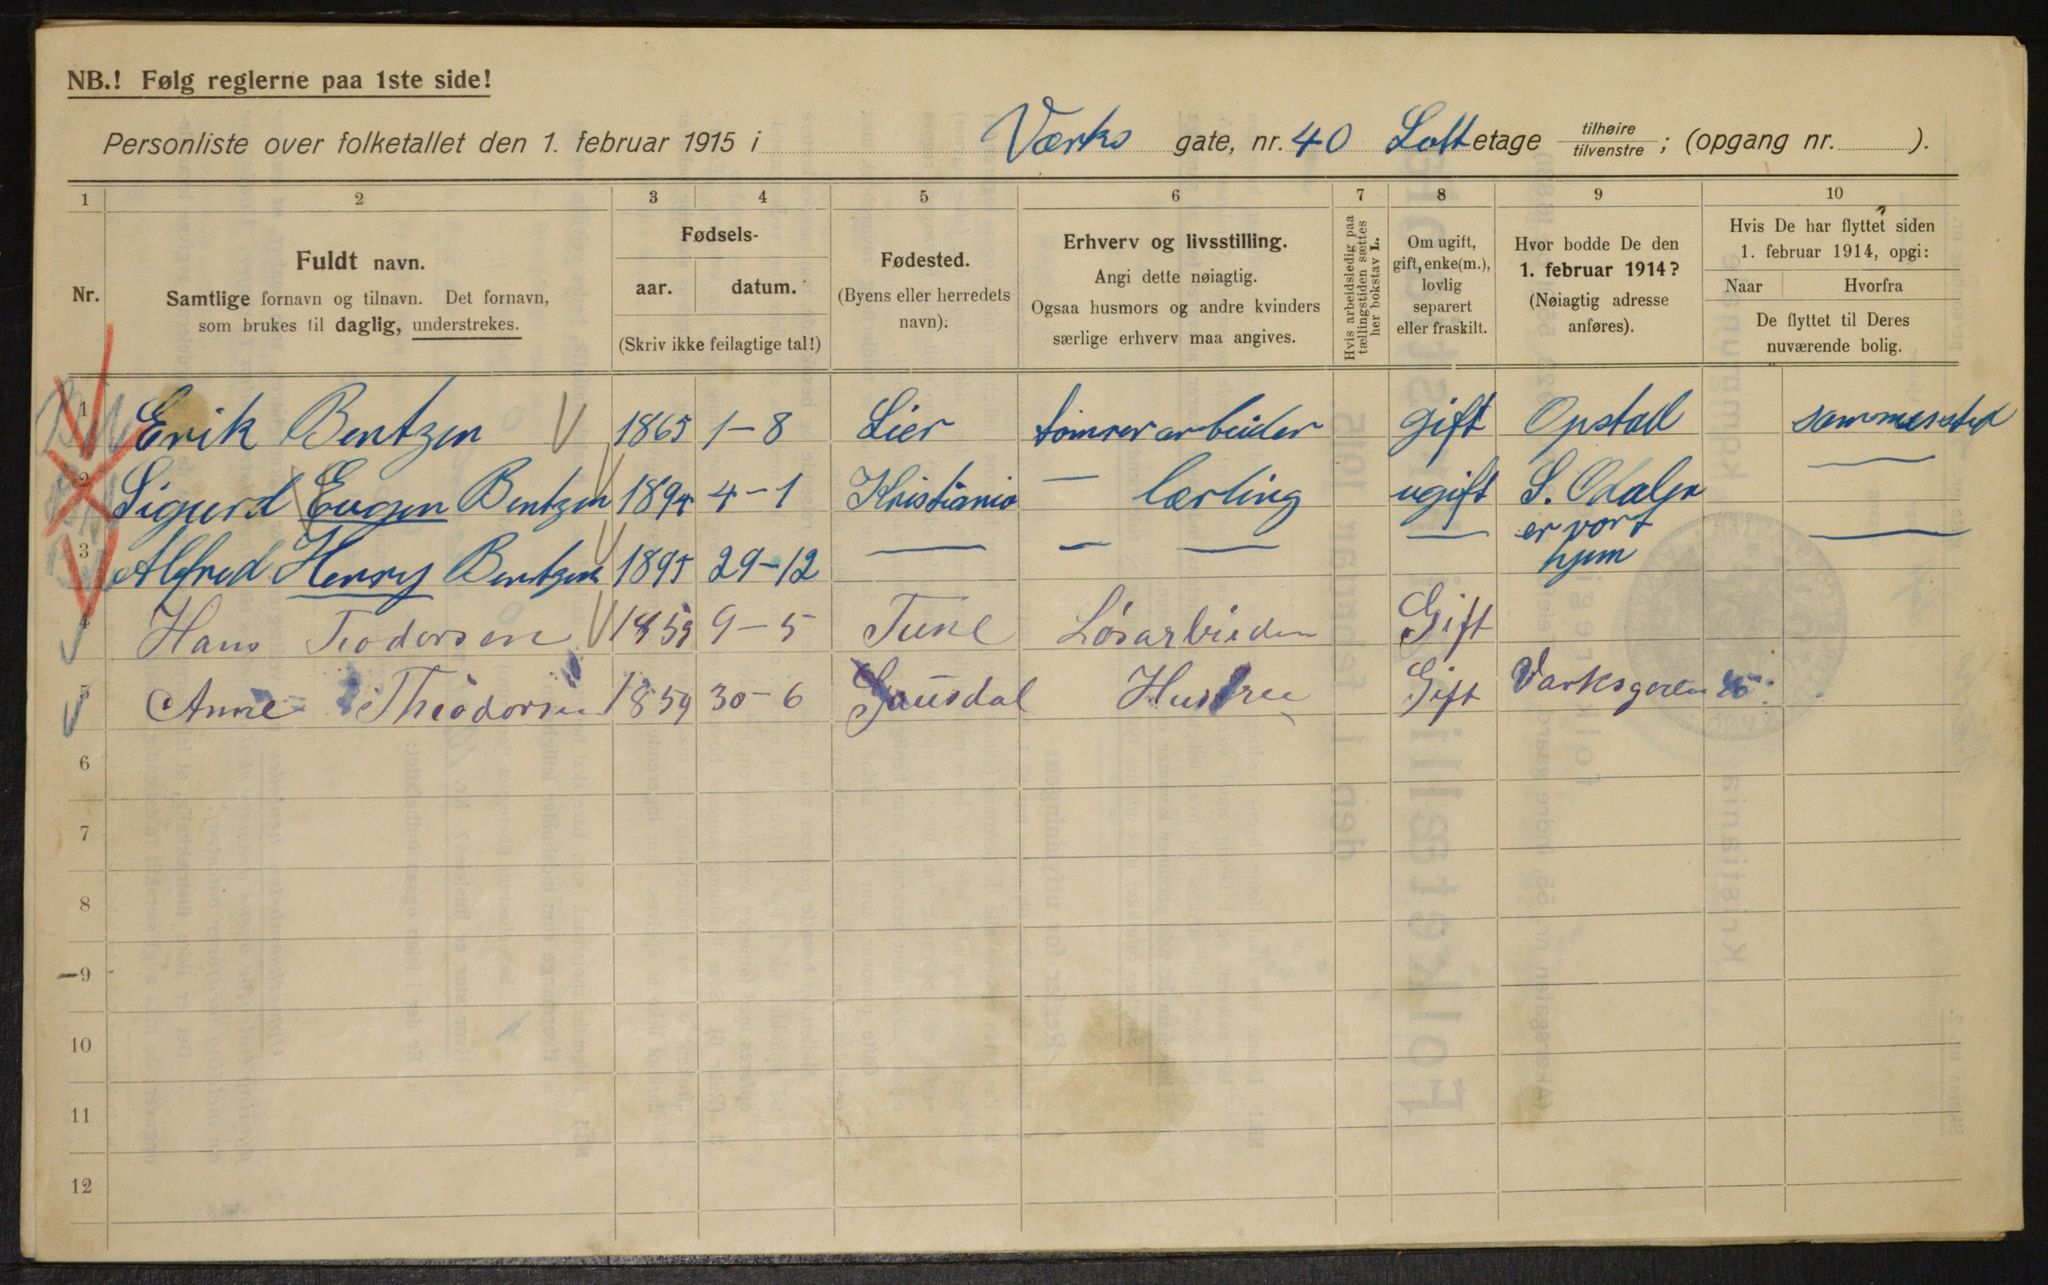 NB.! Følg reglerne paa 1ste side!
Personliste over folketallet den 1. februar 1915 i Værks gate, nr. 40 Loft etage tilhøire tilvenstre ; (opgang nr. ).
1 2 3 4 5 6 7 8 9 10
Nr.
Fuldt navn.
Samtlige fornavn og tilnavn. Det fornavn,
som brukes til daglig, understrekes.
Fødsels-
aar. datum.
(Skriv ikke feilagtige tal!)
Fødested.
(Byens eller herredets
navn).
Erhverv og livsstilling.
Angi dette nøiagtig.
Ogsaa husmors og andre kvinders
særlige erhverv maa angives.
Hvis arbeidsledig paa
tællingstiden sættes
her bokstav L.
Om ugift,
gift, enke(m.),
lovlig
separert
eller fraskilt.
Hvor bodde De den
1. februar 1914?
(Nøiagtig adresse
anføres).
Hvis De har flyttet siden
1. februar 1914, opgi:
Naar Hvorfra
De flyttet til Deres
nuværende bolig.
1 Erik Bentzen 1865 1-8 Lier tømrerarbeider gift Opstad sammested
2 Sigurd Eugen Bentzen 1894 4-1 Kristiania — lærling ugift S. Odalen —
3 Alfred Henry Bentzen 1895 29-12 — — — — er vort —
hjem
4 Hans Teodorsen 1859 9-5 Tune Løsarbeider Gift
5 Anne Theodorsen 1859 30-6 Gausdal Hustru Gift Varksgaten
6
7
8
9
10
11
12